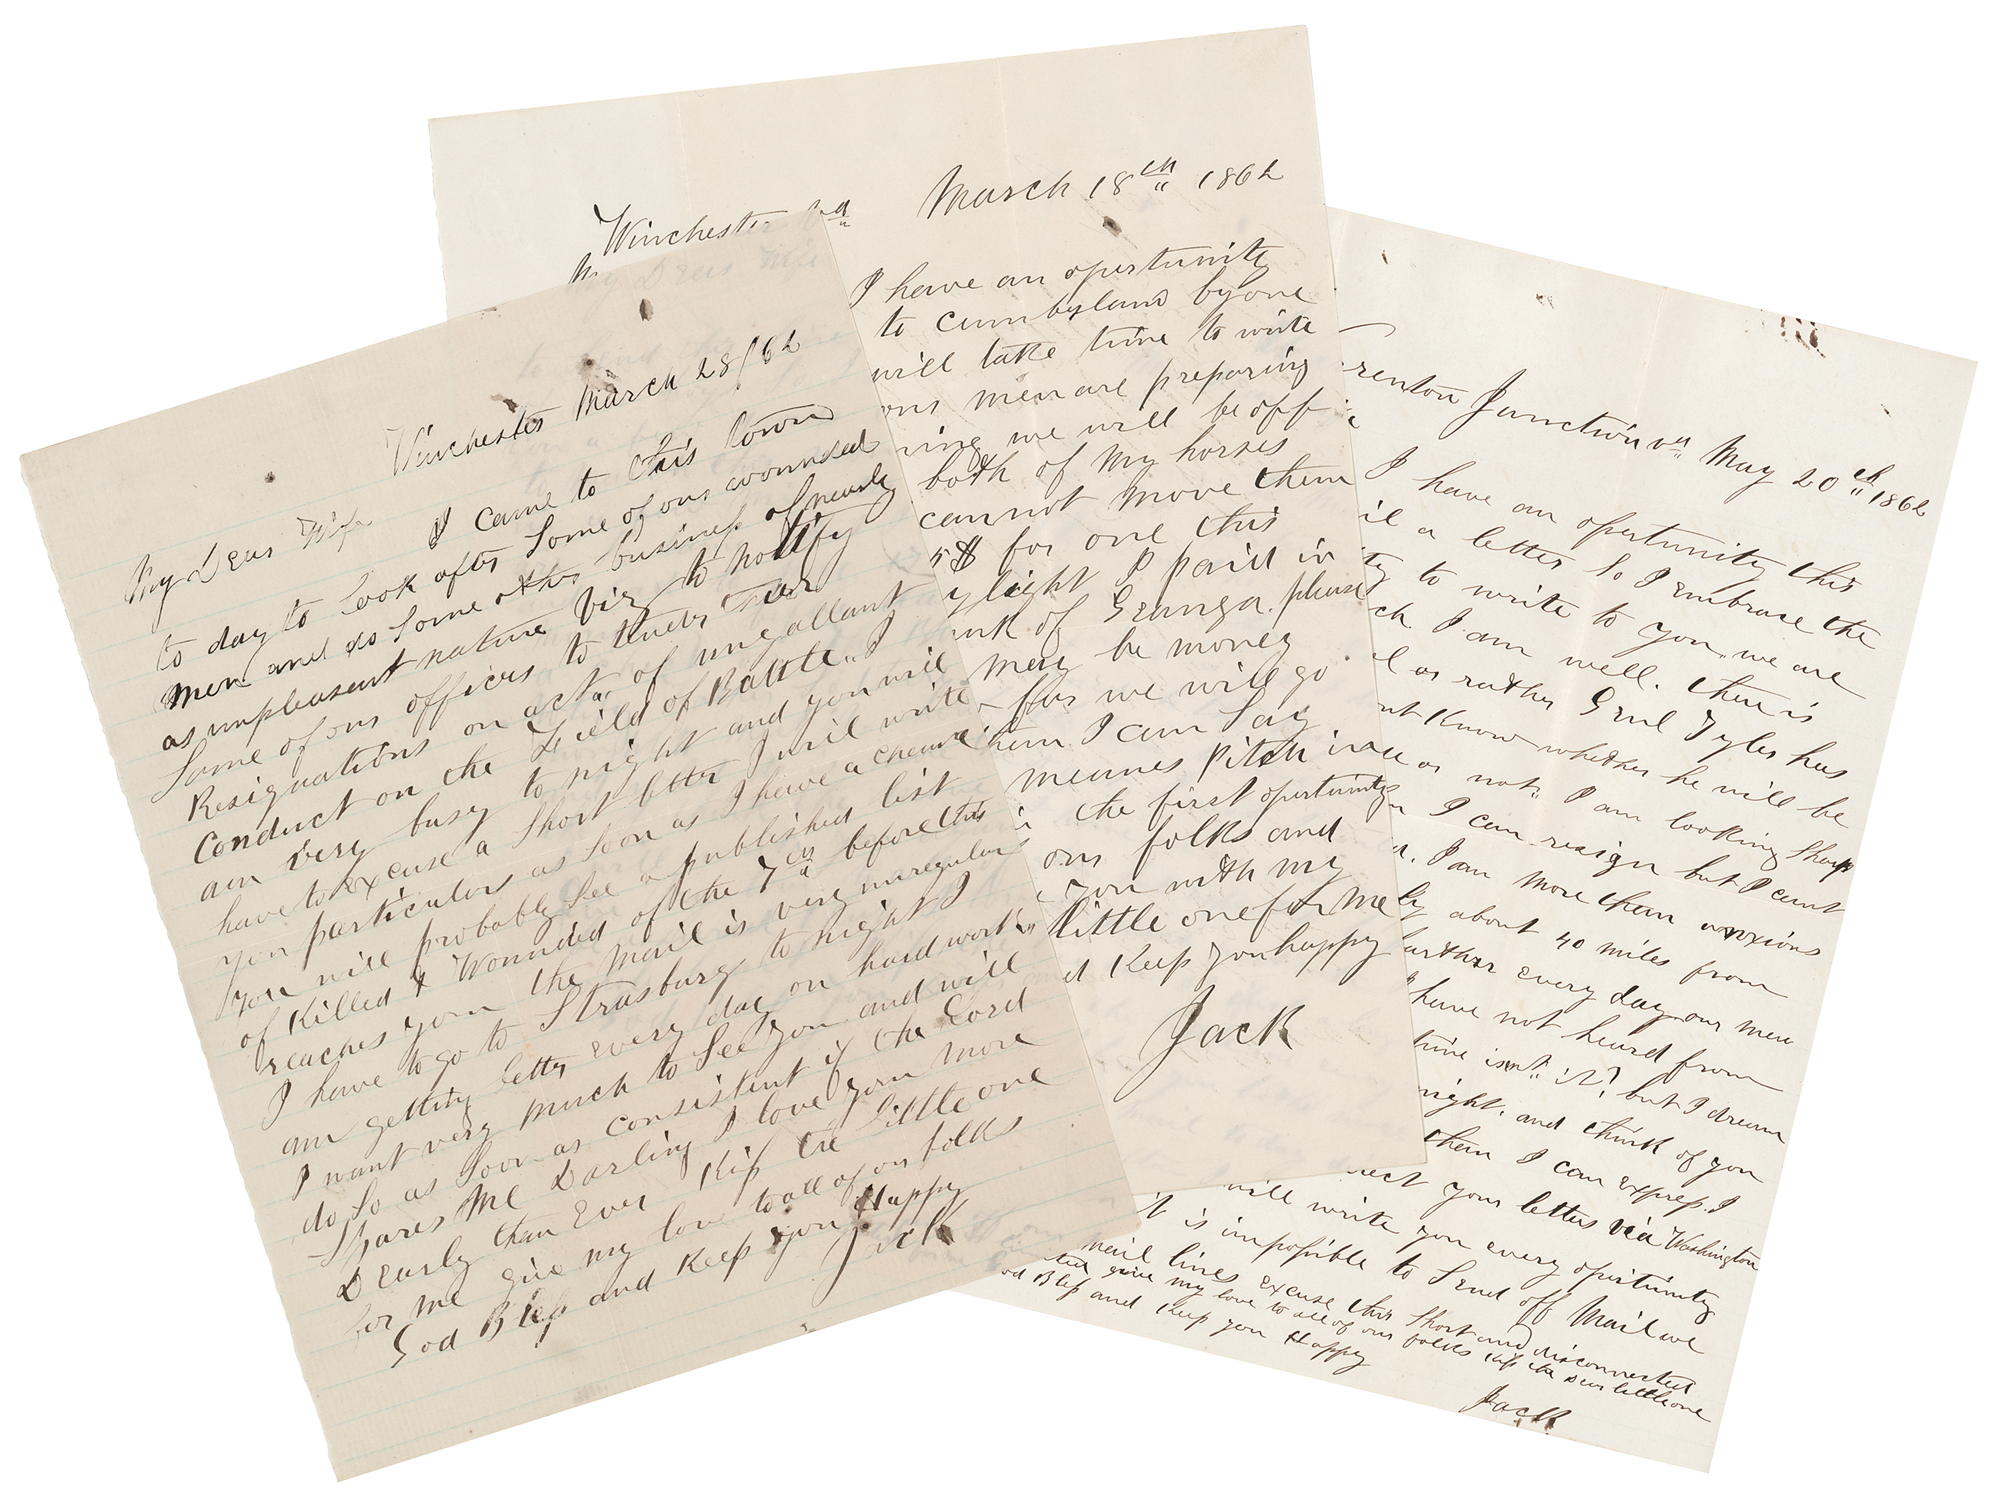 Winchester March 28/62
My Dear Wife I came to this town
to day to look after some of our wounded
men and do some other business of nearly
as unpleasant nature viz to notify
some of our officers to tender their
Resignations on act" of ungallant
conduct on the Field of Battle.. I
am very busy to night and you will
have to excuse a short letter I will write
you particulars as soon as I have a chance
you will probably see a published list
of Killed & Wounded of the 7th before this
reaches you the mail is very unregular
I have to go to Strasburg to night I
am getting letts every day on hard work
I want very much to see you and will
do so as soon as consistent if the Lord
spares Me Darling I love you more
Dearly than Ever Kiss the little one
for me give my love to all of our folks
God Bless and Keep you Happy
Jack
Winchester Va March 18th 1862
My Dear Wife
I have an opertunity
to cumbyland by one
will take time to write
men are preparing
we will be off
both of my horses
cannot move them
5$ for one this
light I paid in
of Granga. please
may be money
for we will go
them I can say
meanes Pitch in
the first opertunity
our folks and
you with my
little one for me
Keep you happy
Jack
renton Junction Va May 20th 1862
I have an opertunity this
a letter So I Embrace the
to write to you. we are
I am well. there is
or rather Genl Tyler has
Know whether he will be
or not" I am looking sharp
I can resign but I cant
I am more than anxious
about 40 miles from
further every day our men
have not heard from
time isnt" it? but I dream
night. and think of you
them I can express. I
your letters via Washington
will write you every opertunity
it is impossible to send off Mail we
mail lines excuse this short and disconnected
give my love to all of our folks Kiss the dear little one
Bless and Keep you Happy
Jack